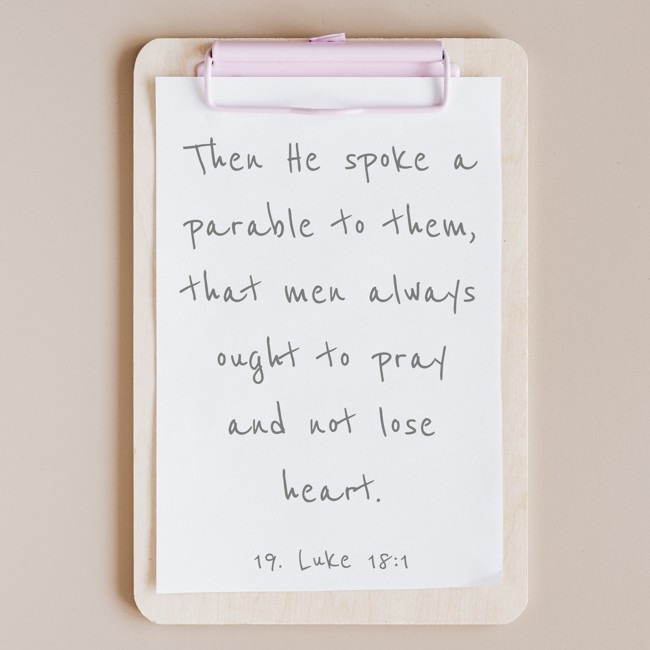 Then He spoke a
parable to them,
that men always
ought to pray
and not lose
heart.
19. Luke 18:1